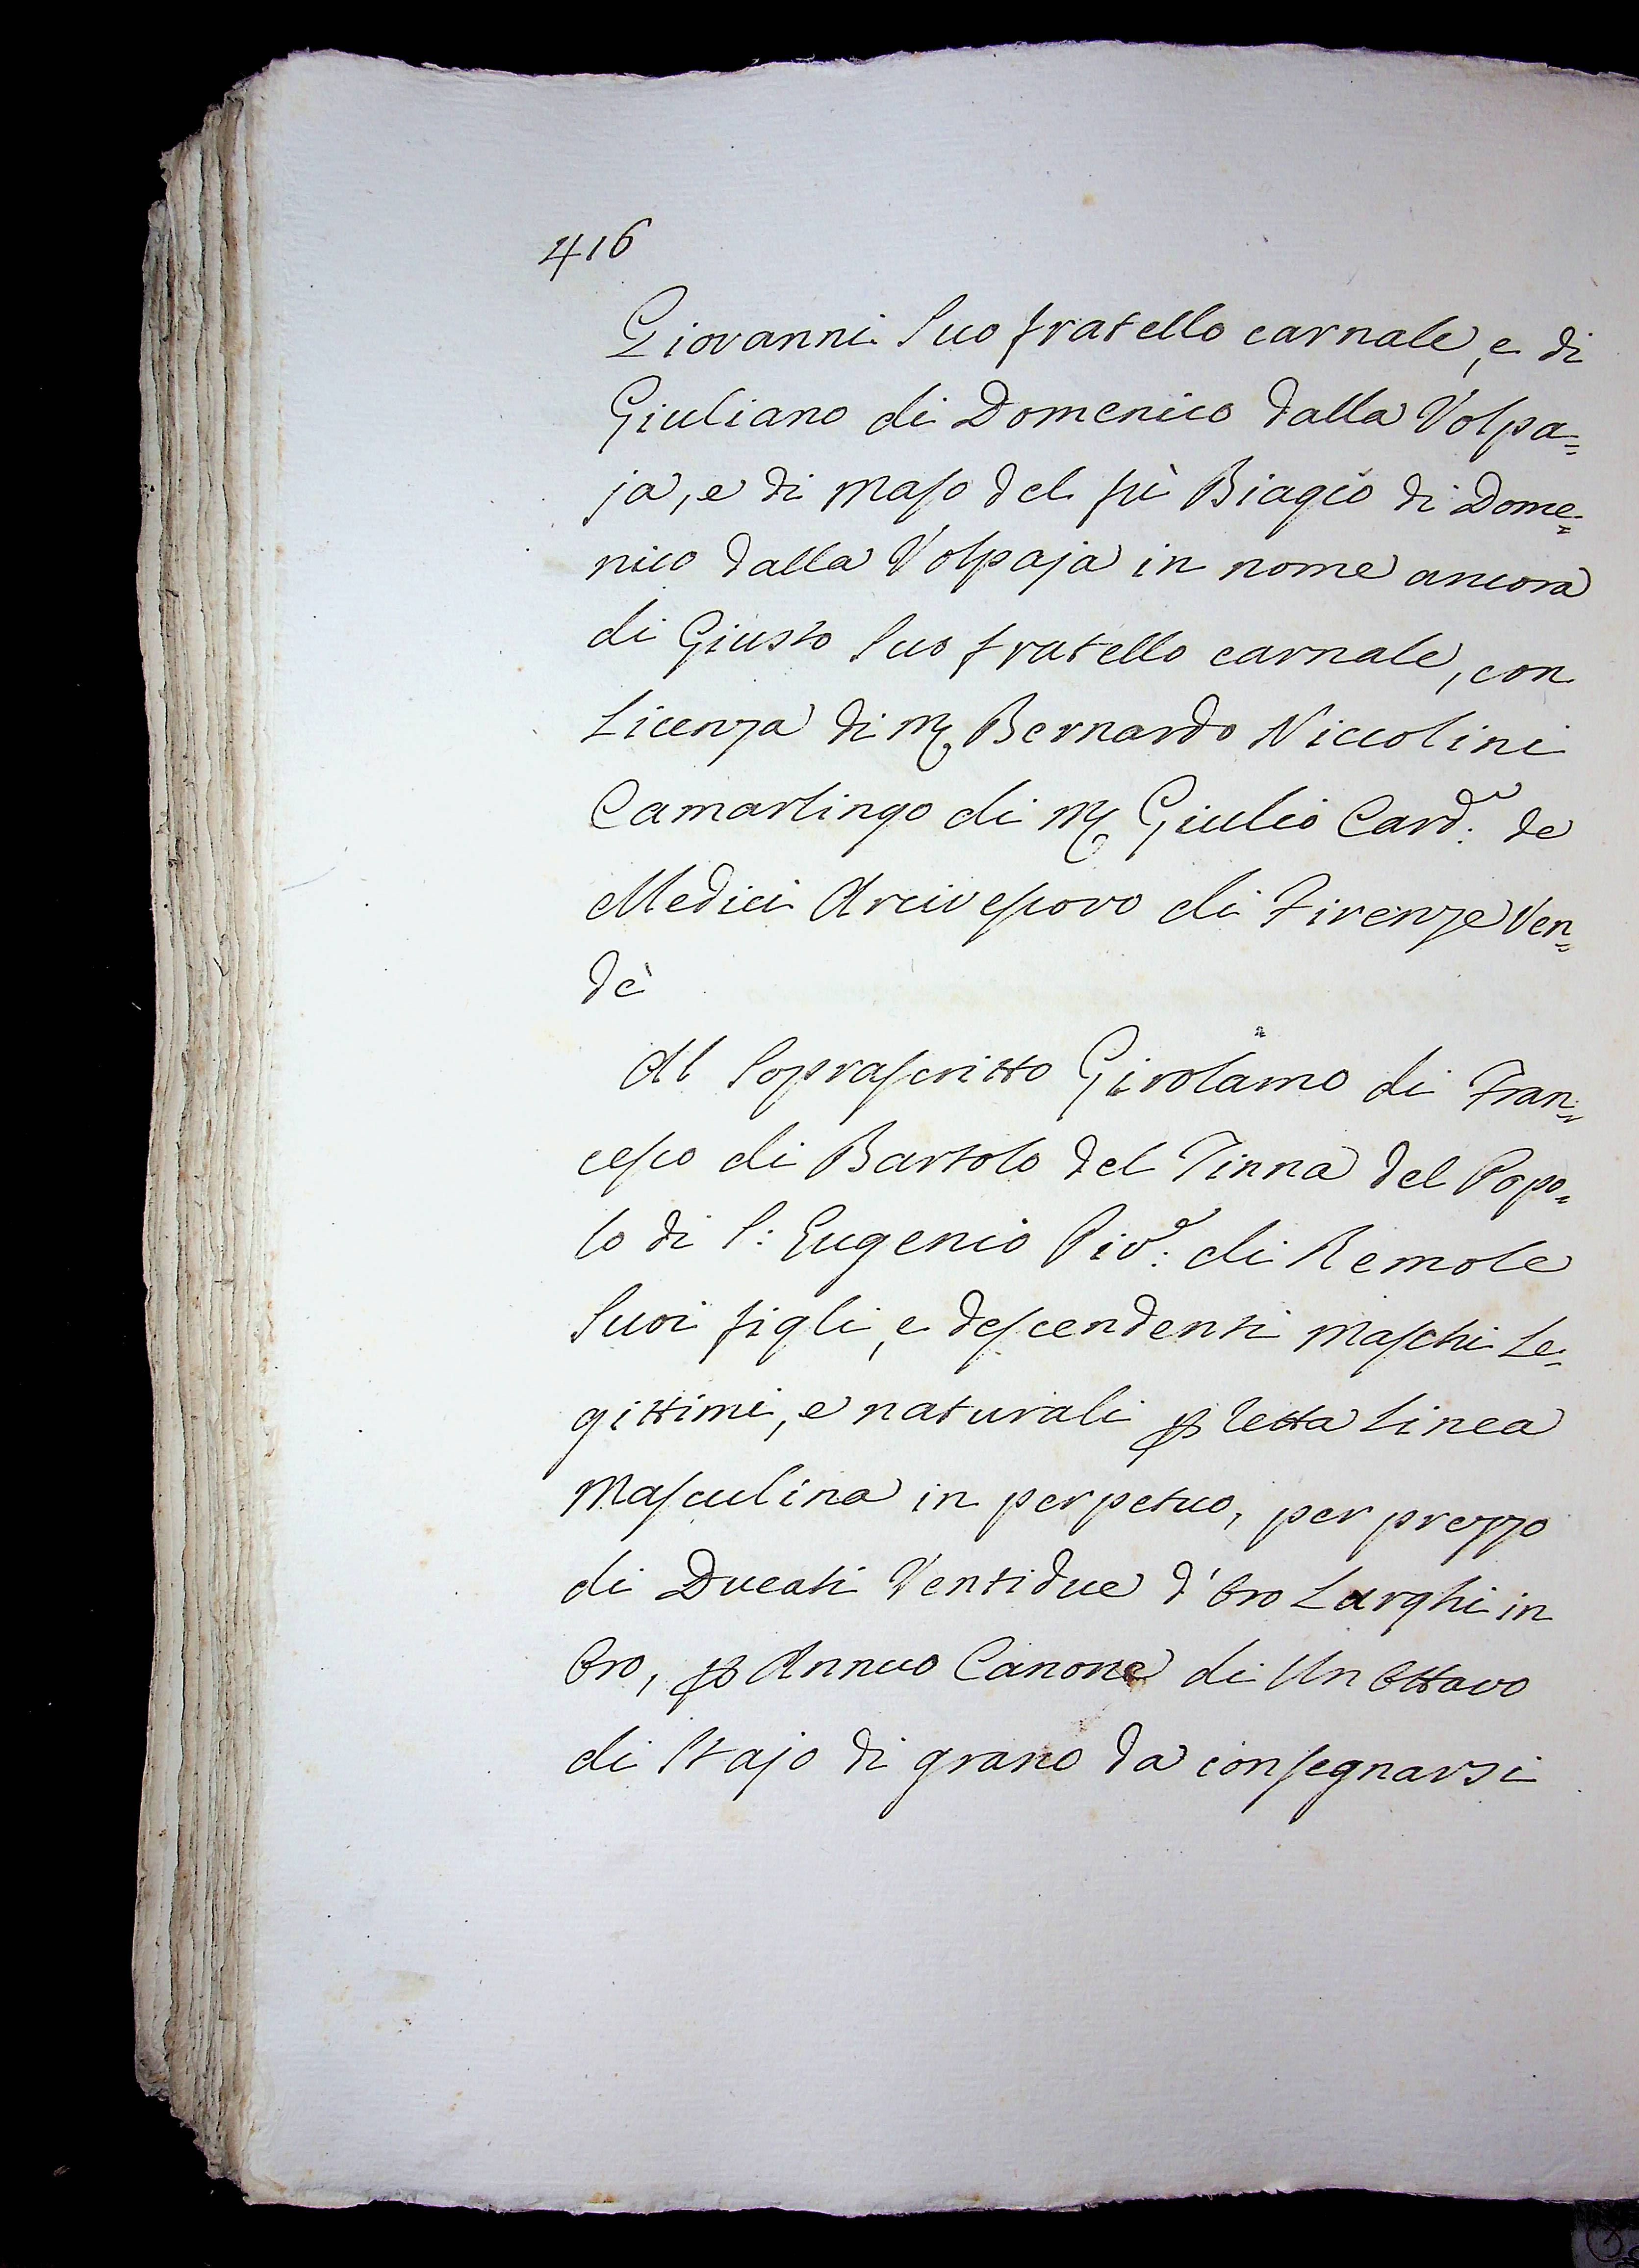 416
Giovanni Suo fratello carnale, e di
Giuliano di Domenico dalla Volpa=
ja, e di Maso del fù Biagio di Dome=
nico dalla Volpaja in nome ancora
di Giusto Suo fratello carnale, con
Licenza di M. Bernardo Niccolini
Camarlingo di M. Giulio Card.e de
Medici Arcivescovo di Firenze Ven=
dè
Al Soprascritto Girolamo di Fran=
cesco di Bartolo del Tinna del Popo=
lo di S: Eugenio Piv.e di Remole
Suoi figli, e descendenti Maschi Le=
gittimi, e naturali p retta Linea
Masculina in perpetuo, per prezzo
di Ducati Ventidue d'Oro Larghi in
Oro, p Annuo Canone di Un Ottavo
di Stajo di grano da consegnarsi